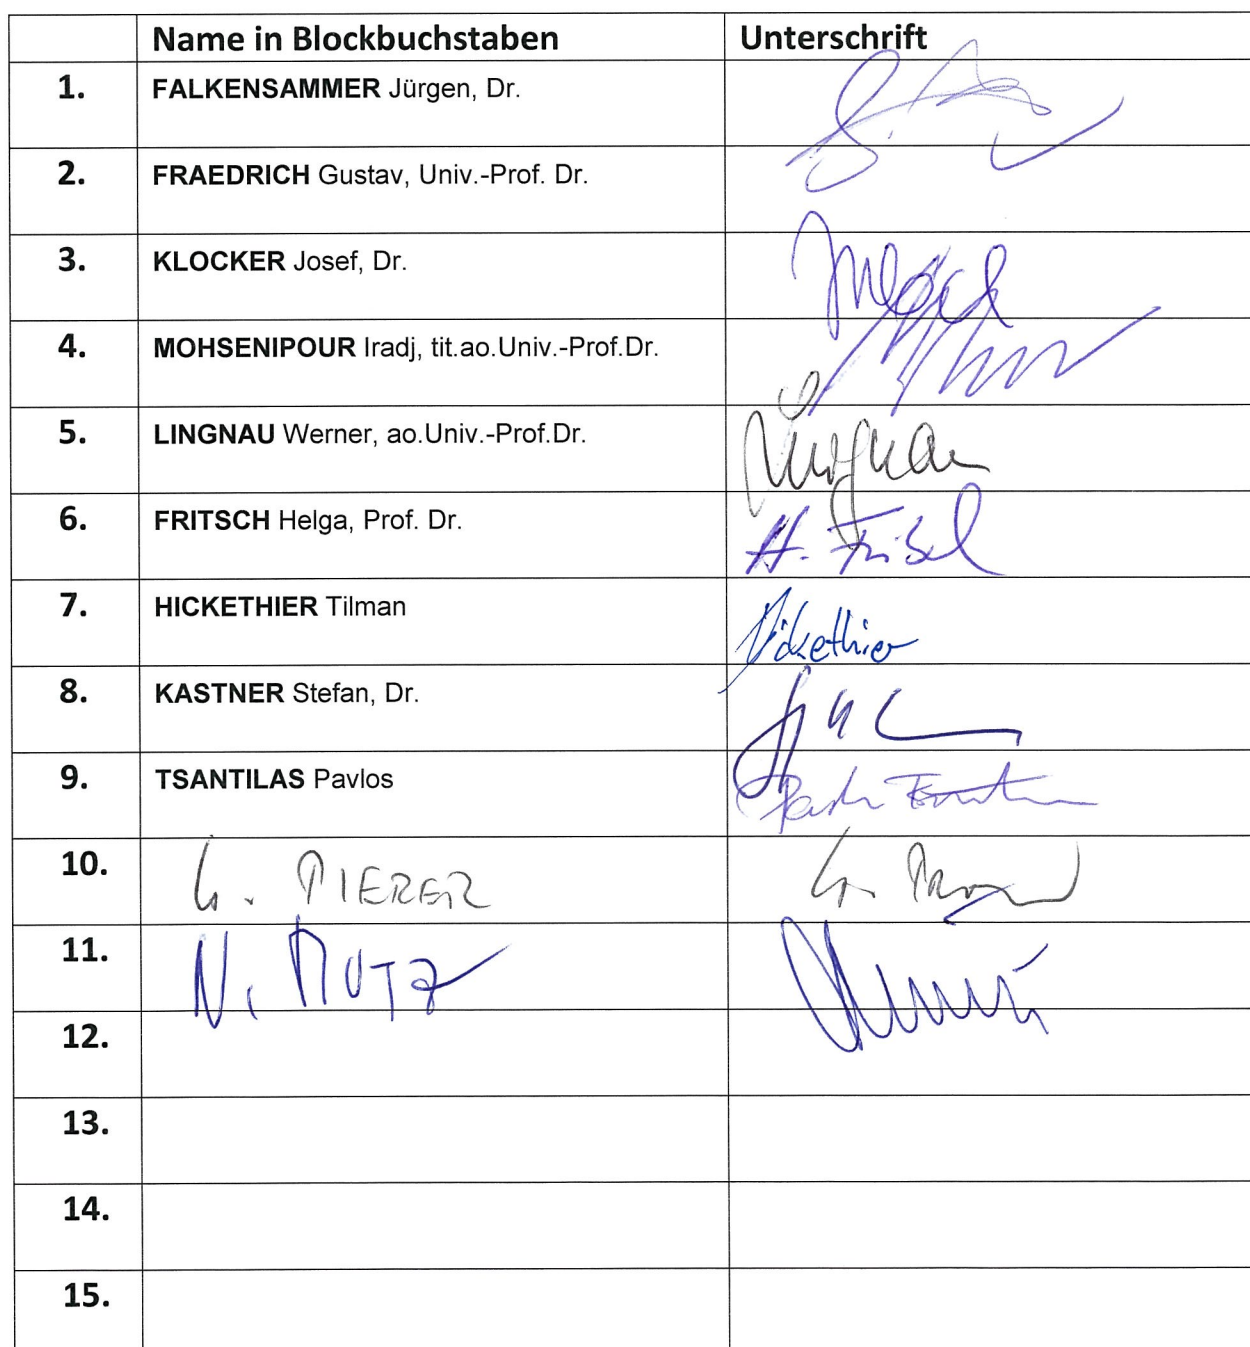 Name in Blockbuchstaben Unterschrift
1. FALKENSAMMER Jürgen, Dr.
2. FRAEDRICH Gustav, Univ.-Prof. Dr.
3. KLOCKER Josef, Dr.
4. MOHSENIPOUR Iradj, tit.ao.Univ.-Prof.Dr.
5. LINGNAU Werner, ao.Univ.-Prof.Dr. Lingnau
6. FRITSCH Helga, Prof. Dr. H.
7. HICKETHIER Tilman Hickethier
8. KASTNER Stefan, Dr.
9. TSANTILAS Pavlos
10. G. PIERER
11. N. MUTZ
12.
13.
14.
15.